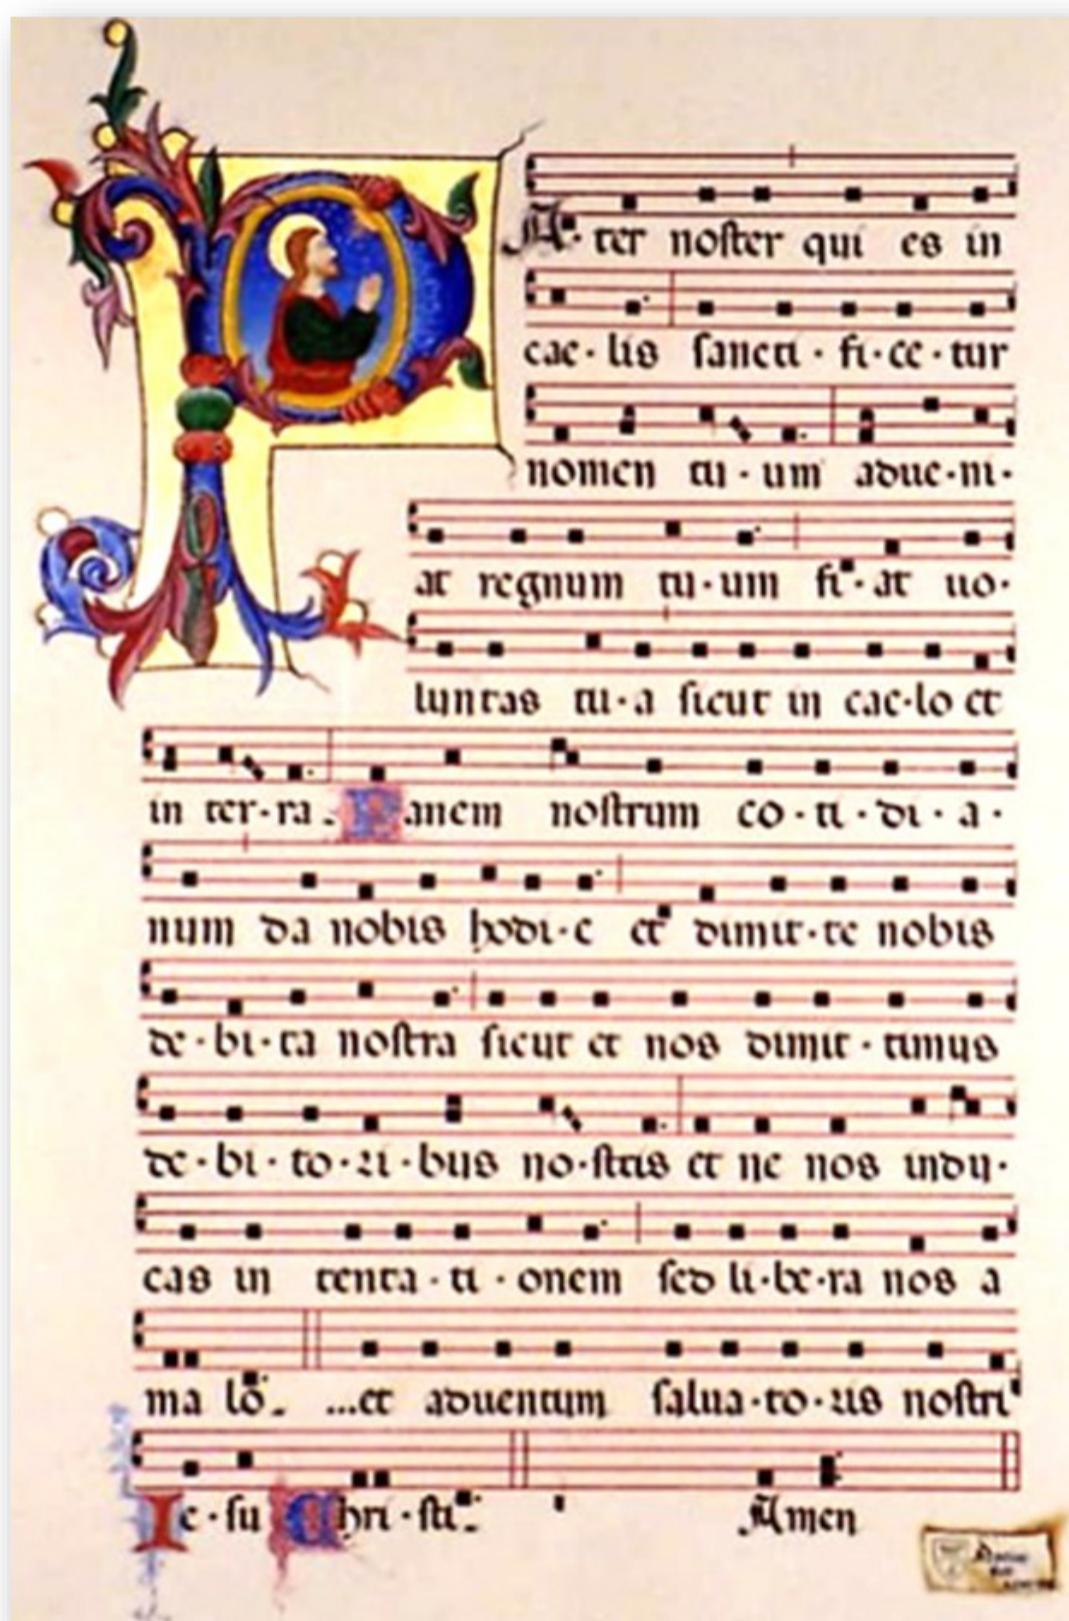 PAter noster qui es in
cae·lis sancti·fi·ce·tur
nomen tu·um adue·ni·
at regnum tu·um fi·at uo·
luntas tu·a sicut in cae·lo et
in ter·ra. Panem nostrum co·ti·di·a·
num da nobis hodi·e et dimit·te nobis
de·bi·ta nostra sicut et nos dimit·timus
de·bi·to·ri·bus no·stris et ne nos indu·
cas in tenta·ti·onem sed li·be·ra nos a
ma lo. ...et aduentum salua·to·ris nostri
Ie·su Chri·sti. Amen